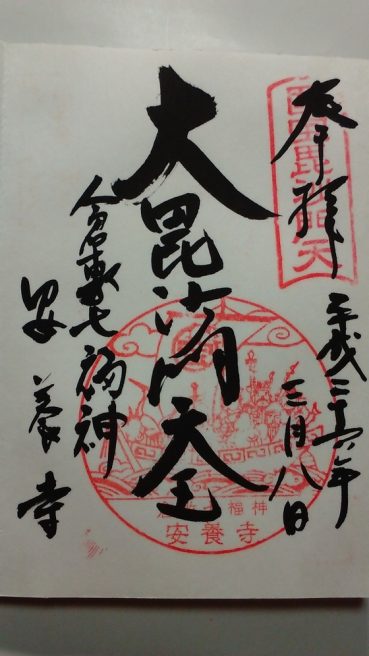 奉拝
平成二十六年
三月八日
西国毘沙門天
大毘沙門天王
倉敷七福神
安養寺
福神
安養寺